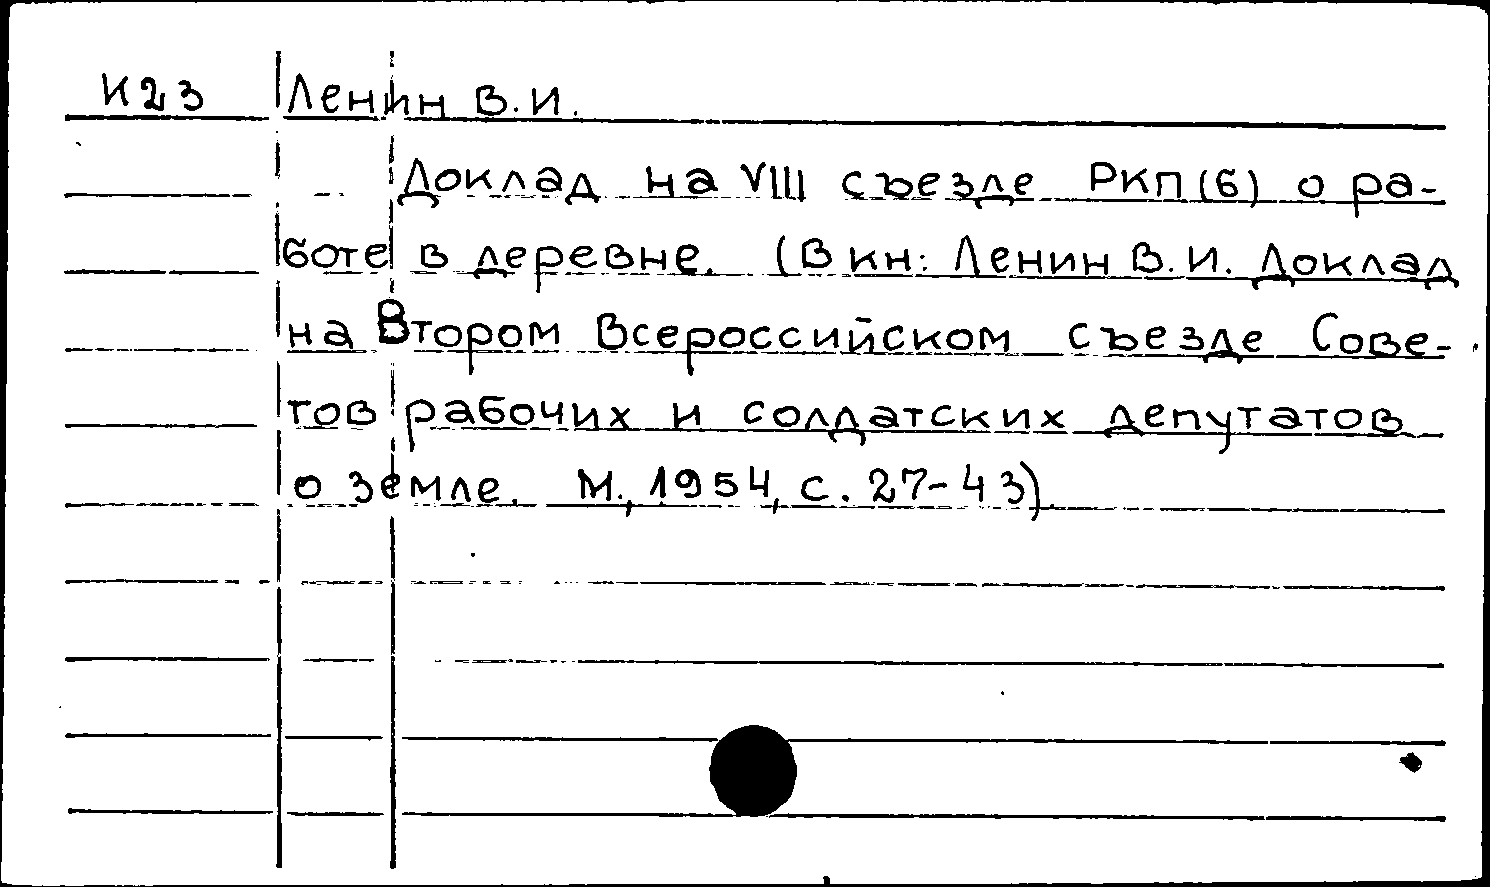 К23 Ленин В.И.
Доклад на VIII съезде РКП(б) о ра-
боте в деревне. (В кн: Ленин В.И. Доклад
на Втором Всероссийском съезде Сове-
тов рабочих и солдатских депутатов
о земле. М., 1954, с. 27-43)